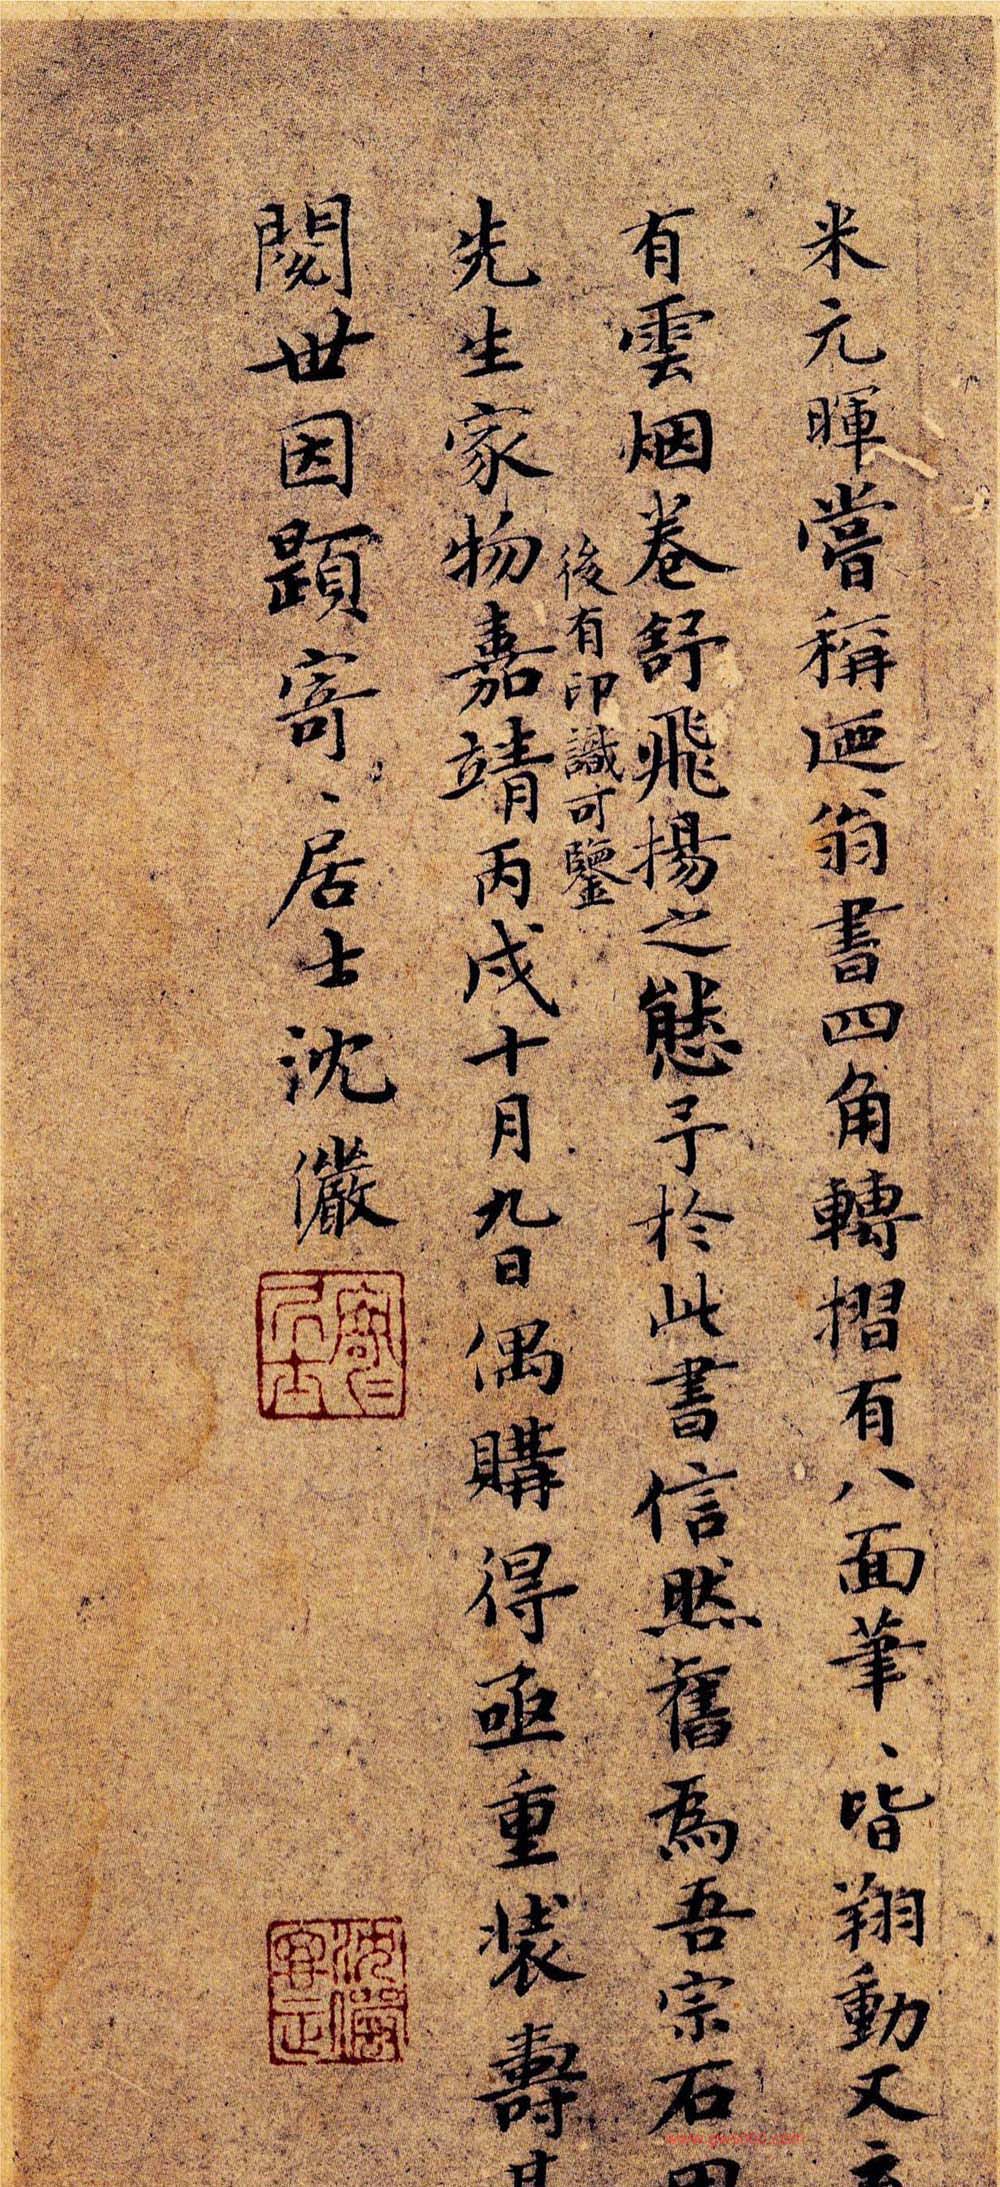 米元暉嘗稱迺翁書四角轉摺有八面筆、皆翔動又
有雲烟卷舒飛揚之態予於此書信然舊為吾宗石田
後有印識可鑒
先生家物嘉靖丙戌十月九日偶購得亟重裝壽其
閱世因題寄、居士沈儼